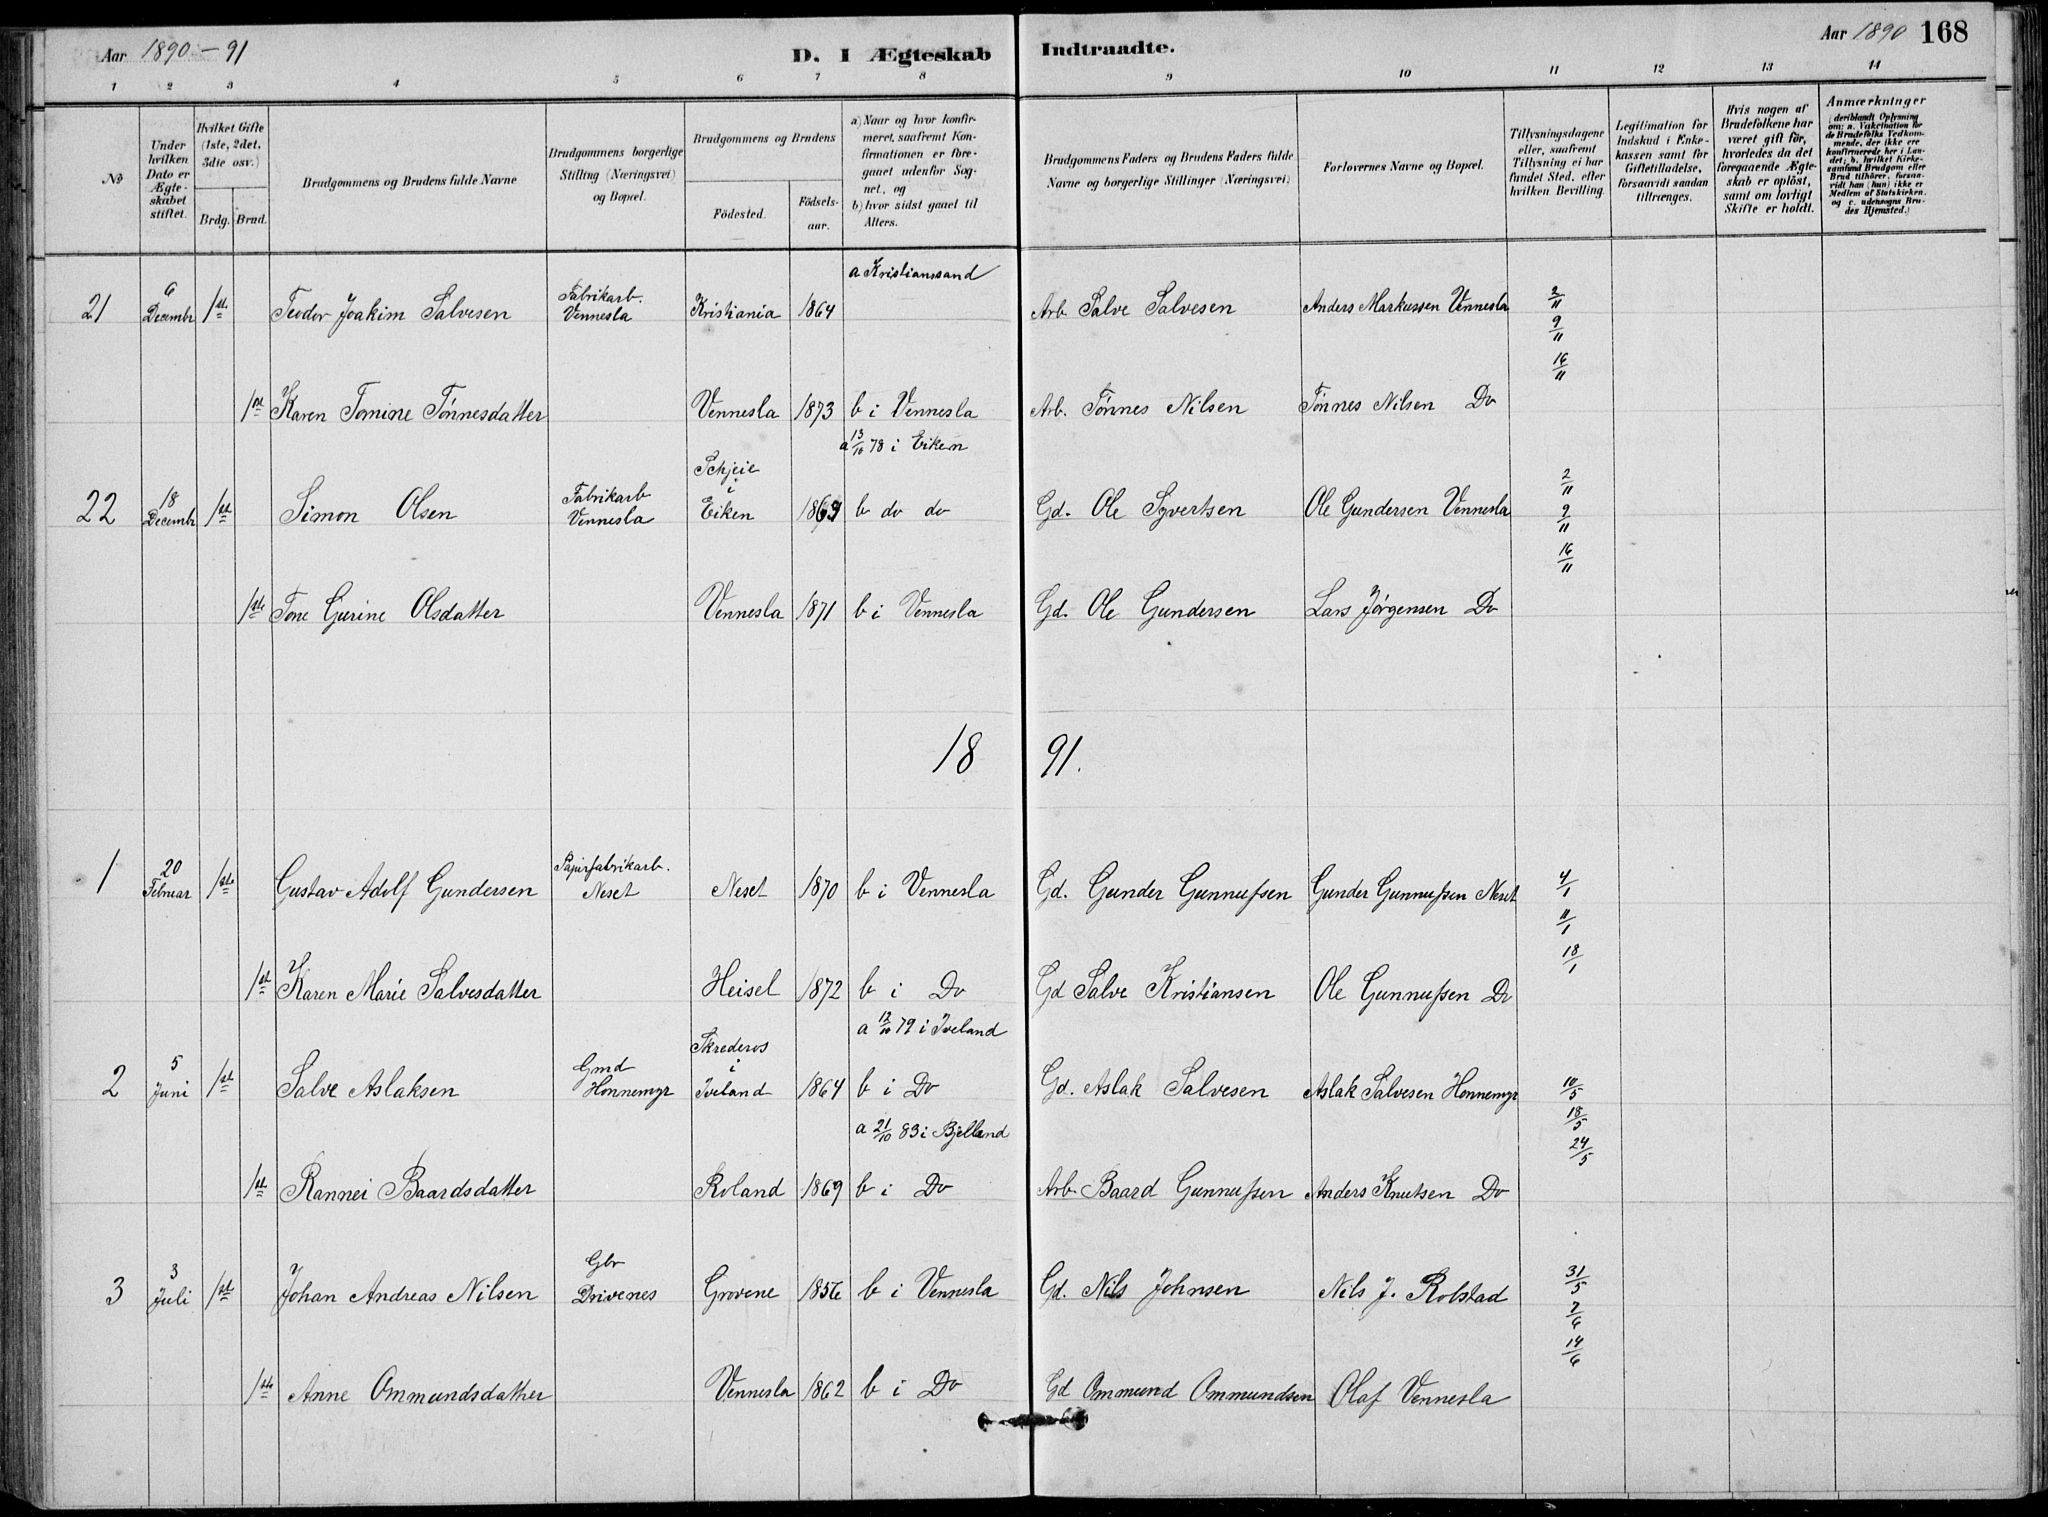 Aar 1890-91
D. I Ægteskab Indtraadte.
Aar 1890 168
1 2 3 4 5 6 7 8 9 10 11 12 13 14
No
Under hvilken Dato er Ægteskabet stiftet.
Hvilket Gifte (1ste, 2det, 3die osv.)
Brdg. Brud.
Brudgommens og Brudens fulde Navne
Brudgommens borgerlige Stilling (Næringsvei) og Bopæl.
Brudgommens og Brudens
Födested.
Födselsaar.
a) Naar og hvor konfirmeret, saafremt Konfirmationen er foregaaet udenfor Sognet, og
b) hvor sidst gaaet til Alters.
Brudgommens Faders og Brudens Faders fulde Navne og borgerlige Stillinger (Næringsvei)
Forlovernes Navne og Bopæl.
Tillysningsdagene eller, saafremt Tillysning ei har fundet Sted, efter hvilken Bevilling.
Legitimation for Indskud i Enkekassen samt for Giftetilladelse, forsaavidt saadan tiltrænges.
Hvis nogen af Brudefolkene har været gift för, hvorledes da det foregaaende Ægteskab er oplöst, samt om lovligt Skifte er holdt.
Anmærkninger (deriblandt Oplysning om: a. Vakcination for de Brudefolks Vedkommende, der ikke ere konfirmerede her i Landet; b. hvilket Kirkesamfund Brudgom eller Brud tilhörer, forsaavidt han (hun) ikke er Medlem af Statskirken, og c. udensogns Brudes Hjemsted.)
21 6 Decembr 1ste Teodor Joakim Salvesen Fabrikarb. Vennesla Kristiania 1864 a Kristianssand Arb. Salve Salvesen Anders Markussen Vennesla 2/11 9/11 16/11
1ste Karen Tomine Tönnesdatter Vennesla 1873 b i Vennesla Arb. Tönnes Nilsen Tönnes Nilsen Do
22 18 Decembr 1ste Simon Olsen Fabrikarb Vennesla Schjeie i Eiken 1863 a 13/10 78 i Eiken b do do Gd. Ole Syvertsen Ole Gundersen Vennesla 2/11 9/11 16/11
1ste Tone Gurine Olsdatter Vennesla 1871 b i Vennesla Gd. Ole Gundersen Lars Jörgensen Do
1891.
1 20 Februar 1ste Gustav Adolf Gundersen Papirfabrikarb. Neset Neset 1870 b i Vennesla Gd. Gunder Gunnufsen Gunder Gunnufsen Neset 4/1 11/1 18/1
1ste Karen Marie Salvesdatter Heisel 1872 b i Do Gd Salve Kristiansen Ole Gunnufsen Do
2 5 Juni 1ste Salve Aslaksen Gmd Honnemyr Skrederos i Iveland 1864 a 12/10 79 i Iveland b i Do Gd. Aslak Salvesen Aslak Salvesen Honnemyr 10/5 18/5 24/5
1ste Rannei Baardsdatter Roland 1869 a 21/10 83 i Bjelland b i Do Arb. Baard Gunnufsen Anders Knutsen Do
3 3 Juli 1ste Johan Andreas Nilsen Gbr Drivenes Grovene 1856 b i Vennesla Gd. Nils Johnsen Nils J. Robstad 31/5 7/6 14/6
1ste Anne Ommundsdatter Vennesla 1862 b i Do Gd Ommund Ommundsen Olaf Vennesla